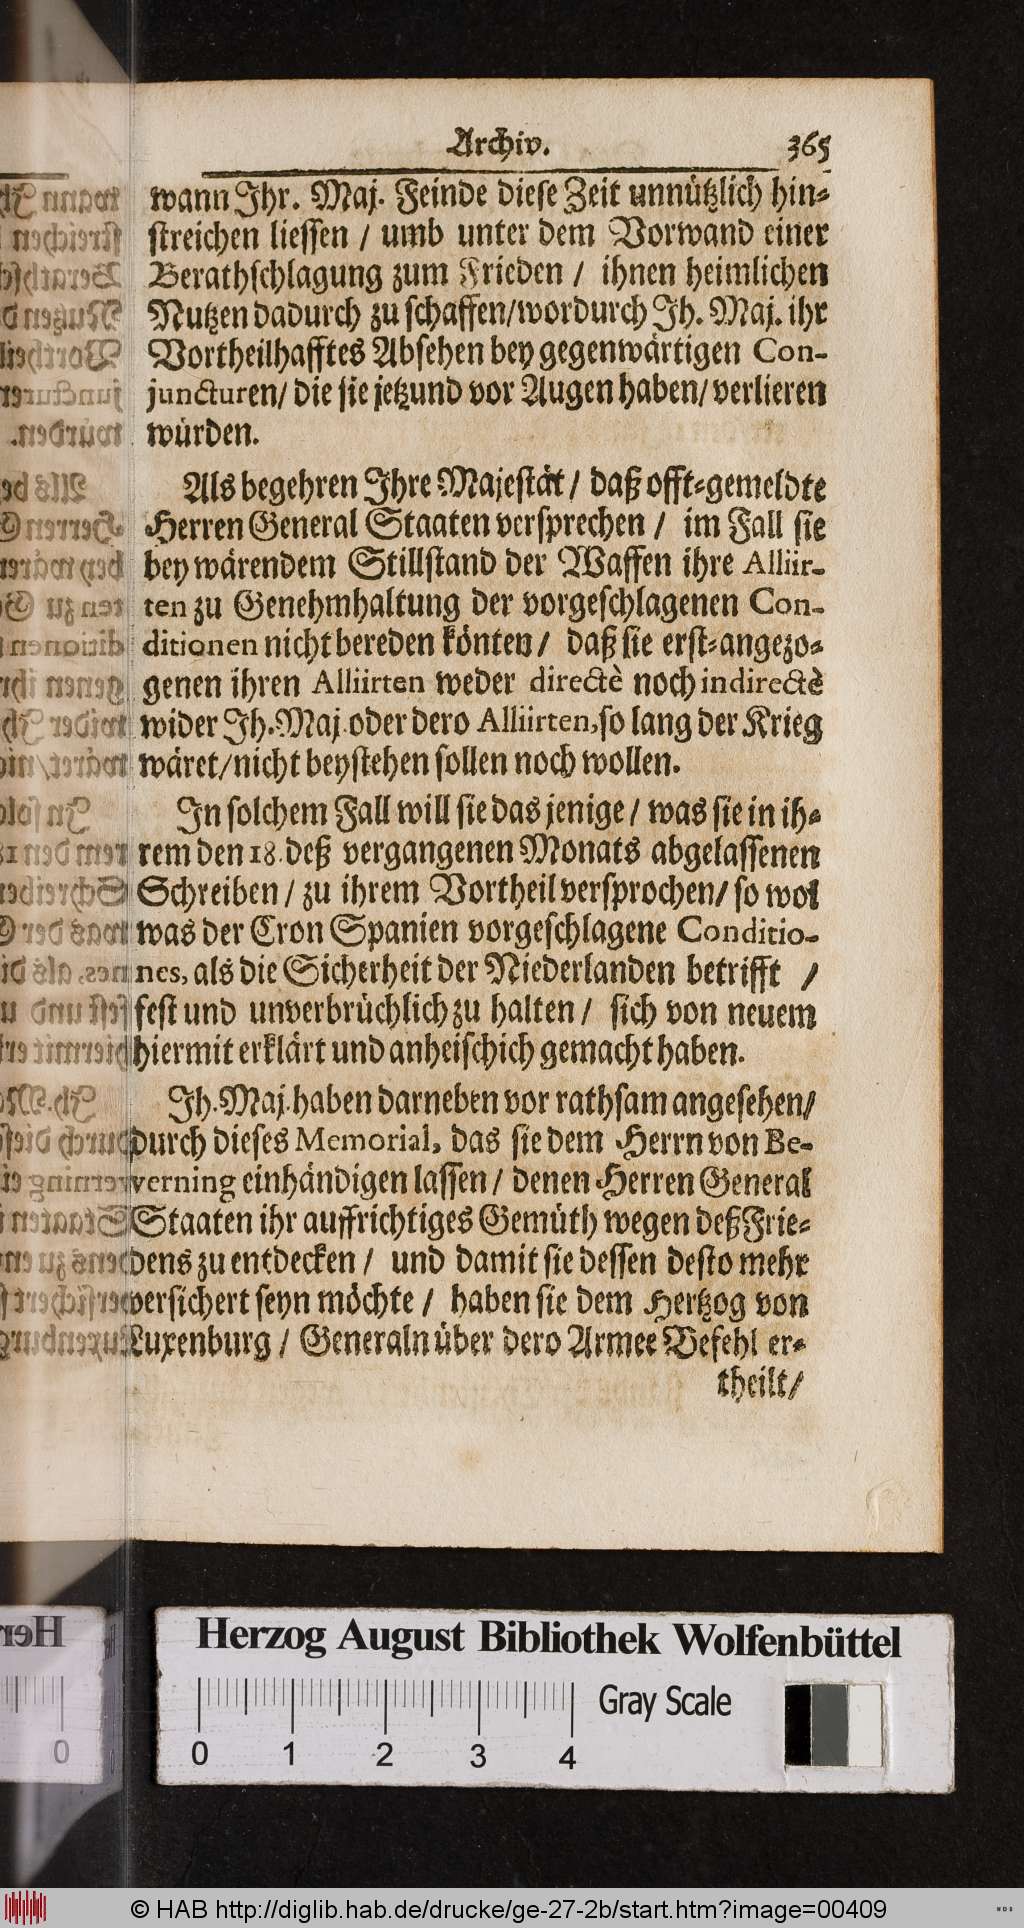 Archiv. 365
wann Ihr. Maj. Feinde diese Zeit unnützlich hin-
streichen liessen / umb unter dem Vorwand einer
Berathschlagung zum Frieden / ihnen heimlichen
Nutzen dadurch zu schaffen/wordurch Ih. Maj. ihr
Vortheilhafftes Absehen bey gegenwärtigen Con-
juncturen/ die sie jetzund vor Augen haben/ verlieren
würden.
Als begehren Ihre Majestät / daß offt-gemeldte
Herren General Staaten versprechen / im Fall sie
bey wärendem Stillstand der Waffen ihre Alliir-
ten zu Genehmhaltung der vorgeschlagenen Con-
ditionen nicht bereden könten / daß sie erst-angezo-
genen ihren Alliirten weder directè noch indirectè
wider Ih. Maj. oder dero Alliirten, so lang der Krieg
wäret/nicht beystehen sollen noch wollen.
In solchem Fall will sie das jenige / was sie in ih-
rem den 18. deß vergangenen Monats abgelassenen
Schreiben / zu ihrem Vortheil versprochen/ so wol
was der Cron Spanien vorgeschlagene Conditio-
nes, als die Sicherheit der Niederlanden betrifft /
fest und unverbrüchlich zu halten / sich von neuem
hiermit erklärt und anheischich gemacht haben.
Ih. Maj. haben darneben vor rathsam angesehen/
durch dieses Memorial, das sie dem Herrn von Be-
verning einhändigen lassen / denen Herren General
Staaten ihr auffrichtiges Gemüth wegen deß Frie-
dens zu entdecken / und damit sie dessen desto mehr
versichert seyn möchte / haben sie dem Hertzog von
Luxenburg / Generaln über dero Armee Befehl er-
theilt/
Herzog August Bibliothek Wolfenbüttel
Gray Scale
0 1 2 3 4
© HAB http://diglib.hab.de/drucke/ge-27-2b/start.htm?image=00409